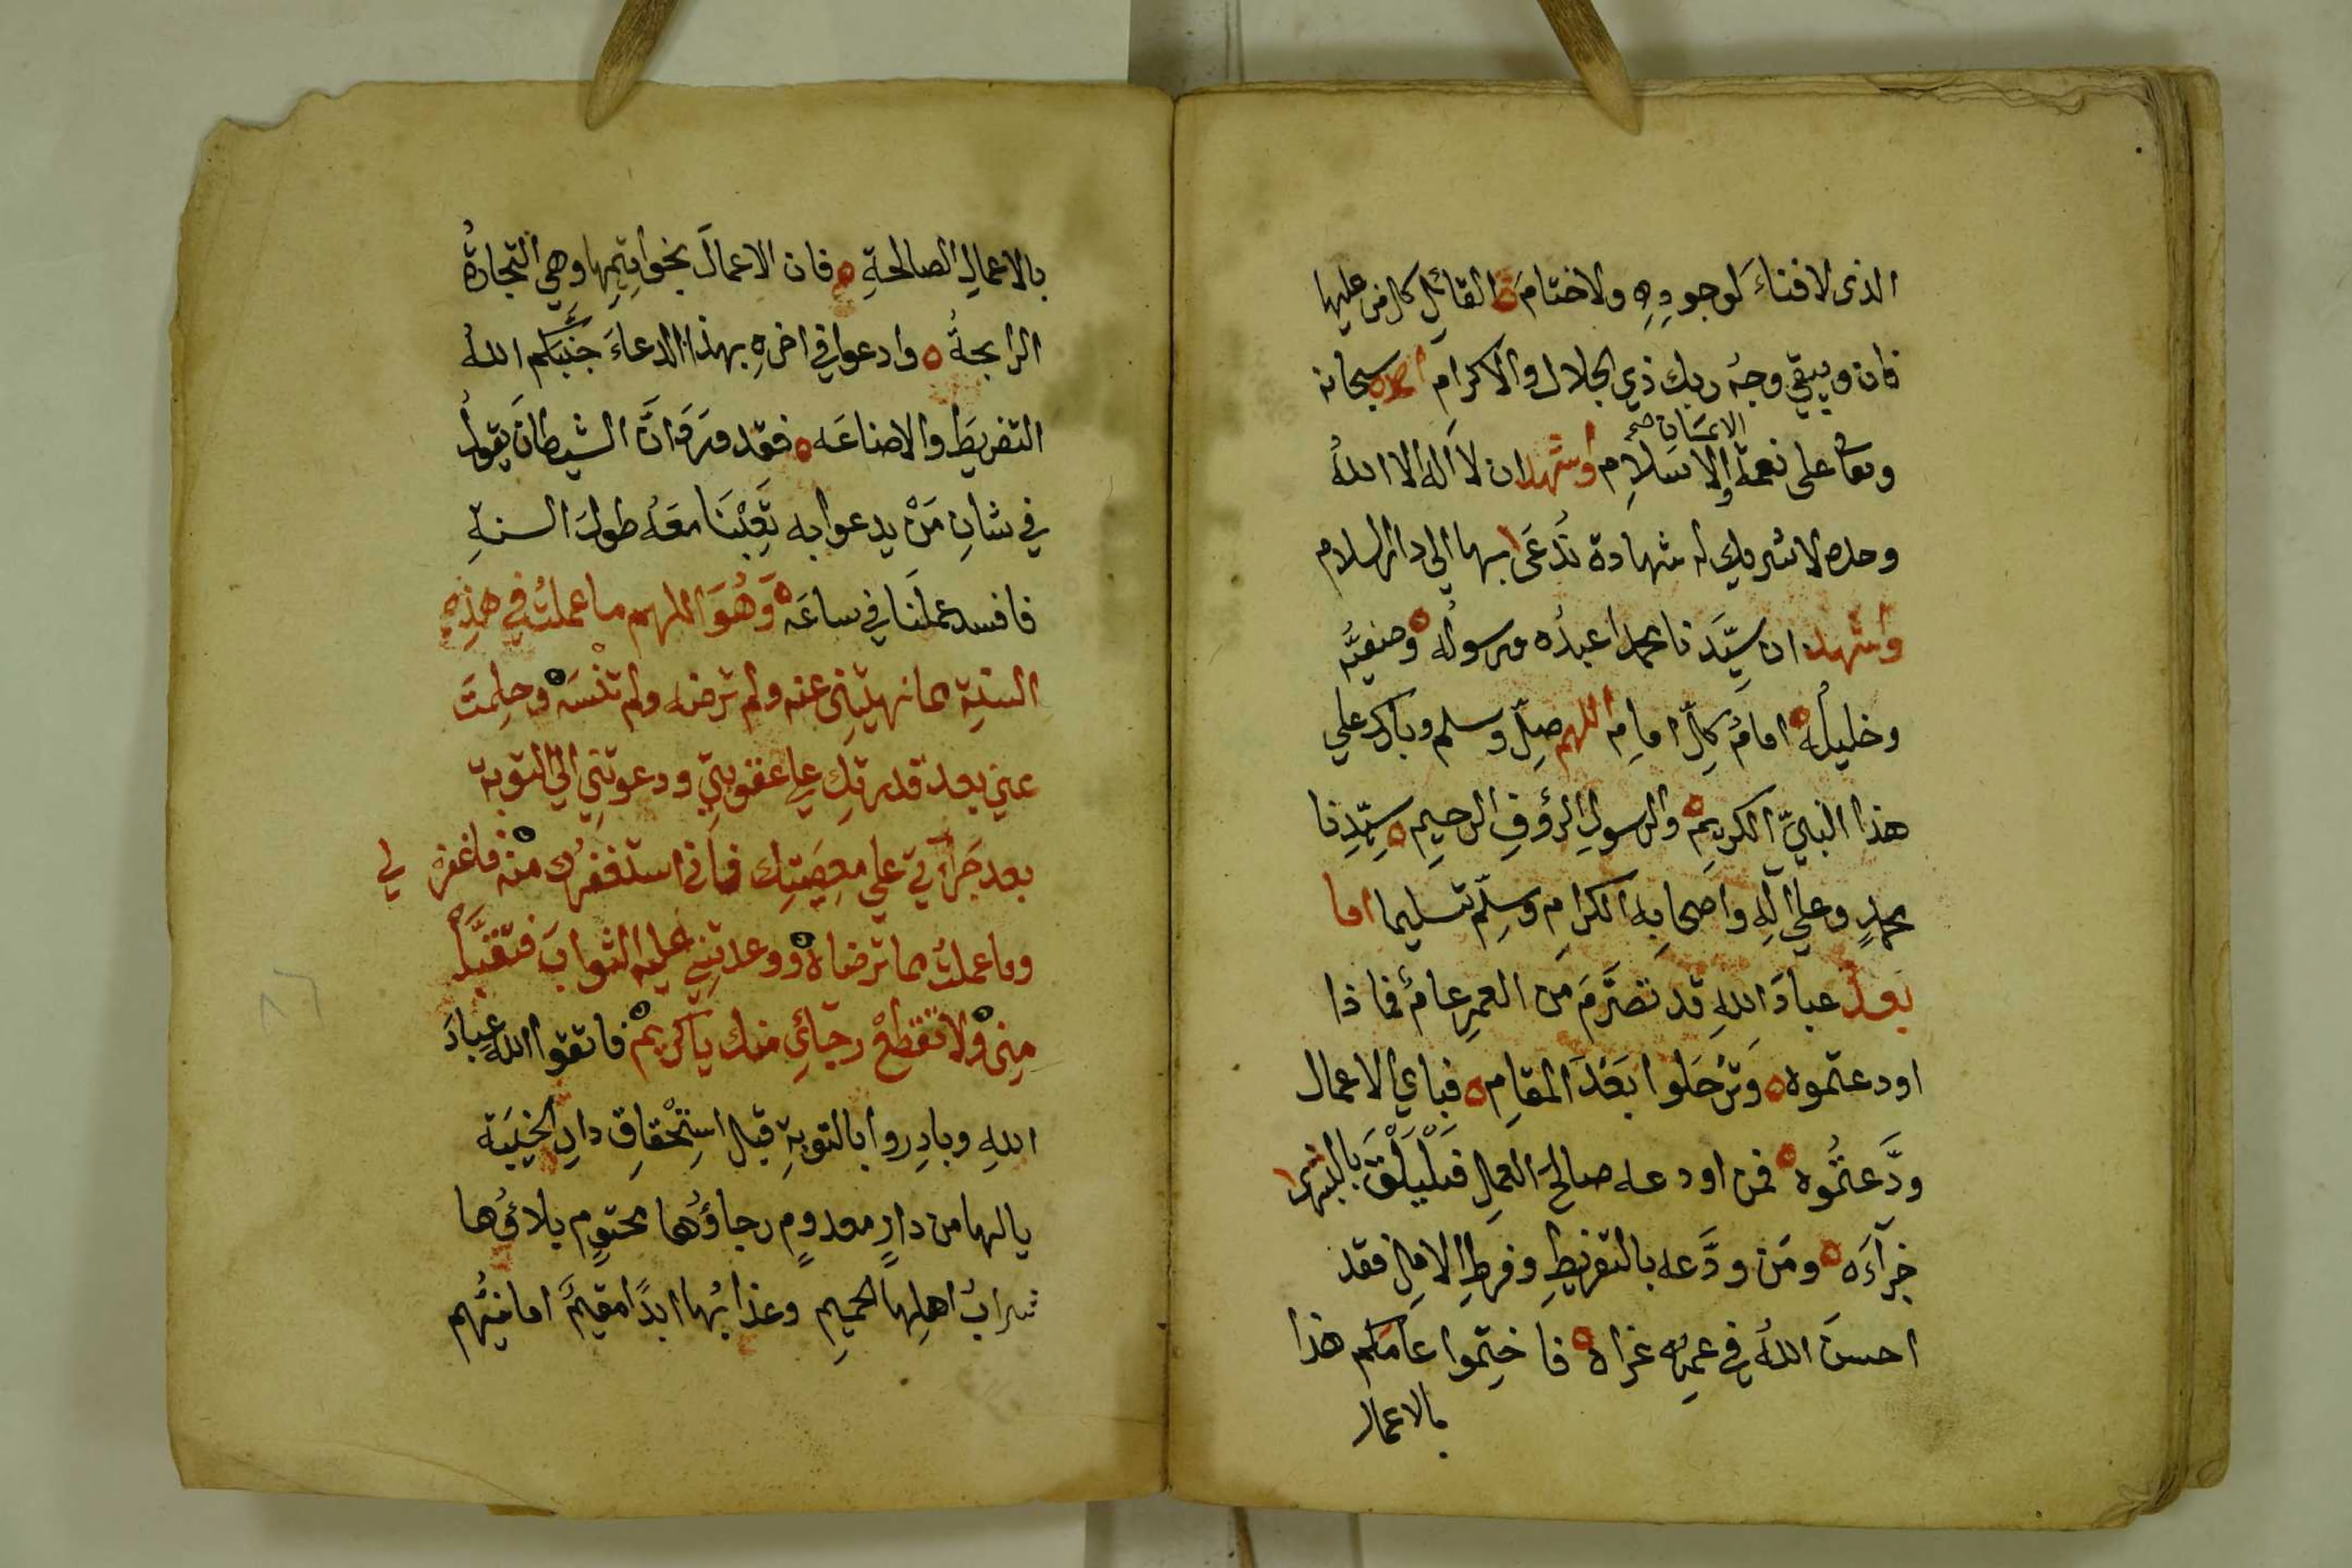 الذى لا فناءَ لوجودِهِ ولا ختامَ ه القائلِ كل من عليها
فان ويبقي وجهُ ربك ذي الجلال والاكرام احمده سبحانه
وتعا على نعمة الاسلامِ واشهد ان لا اله الا اللهُ
الايمان صح
وحده لا شريك له شهادة نُدعَى بها الي دار السلام
واشهد ان سيَّدَنا محمدا عبدُه ورسولُه ه وصفيُّه
وخليلُه ه امامُ كلِّ امامِ اللهم صلِّ وسلم وبارك علي
هذا النبيِّ الكريمِ ه والرسولِ الرؤفِ الرحيمِ ه سيِّدِنا
محمدٍ وعلي آلِهِ واصحابِه الكرامِ وسلِّم تسليما اما
بعد عبادَ اللهِ قد تصَرَّمَ من العمرِ عامٌ فماذا
اودعتموه ه وترحَلوا بَعْدَ المقامِ ه فباي الاعمال
ودَّعتُموه ه فمن اودعه صالحَ العملِ فَلْيَلْقَ بالبشرا
جزآءَه ه ومَن ودَّعه بالتفريطِ وفرطِ الاملِ فقد
احسنَ اللهُ في عمرِه عزاه ه فاختِموا عامَكم هذا
بالاعمال
بالاعمالِ الصالحةِ ه فان الاعمالَ بخواتِمِها وهي التجارةُ
الرابحةُ ه وادعوا في اخرِهِ بهذا الدعاءَ جنَّبكم اللهُ
التفريطَ والاضاعَه ه فقد ورَدَ انَّ الشيطانَ يقولُ
في شانِ مَنْ يدعوا به تَعِبْنَا معَهُ طولَ السنةِ
فافسد عملَنَا في ساعَه ه وَهُوَ اللهم ما عملتُ في هذِهِ
السنةِ مما نهيتَنِي عنه ولم ترضه ولم تنْسَه ه وحلِمتَ
عني بعد قدرتِك علي عقوبتِي ودعوتنِي الي التوبة
بعد جَرآءتي علي معصِيَتِك فاني استغفرُك منه ه فاغفر لي
وما عملتُ مما ترضاه ه ووعدتَنِي عليه الثوابَ فتقبَّلْه
مِنِي ه ولا تقطَعْ رجَائِي منك يا كريمْ ه فاتقوا الله عبادَ
اللهِ وبادِروا بالتوبةِ قبل استِحْقاقِ دارِ الخيبَة
يالها من دارٍ معدومٍ رجاؤُها محتومٍ بلاؤُها
شرابُ اهلِها الحميمِ وعذابُها ابدًا مقيمٌ امانيُّهم